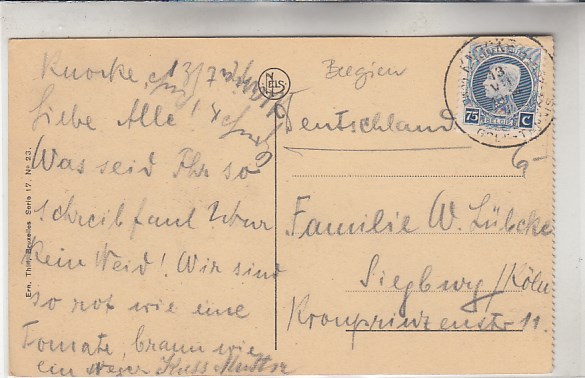 Knocke, 13/7
Liebe Alle!
Was seid Ihr so
schreibfaul? Nur
kein Neid! Wir sind
so rot wie eine
Tomate, braun wie
ein Neger Kuss Mutter
Ern. Thill, Bruxelles Serie 17. No 23.
NELS
Belgien
Deutschland
Familie W. Lübcke
Siegburg / Köln
Kronprinzenstr 11.
75 C
BELGIE